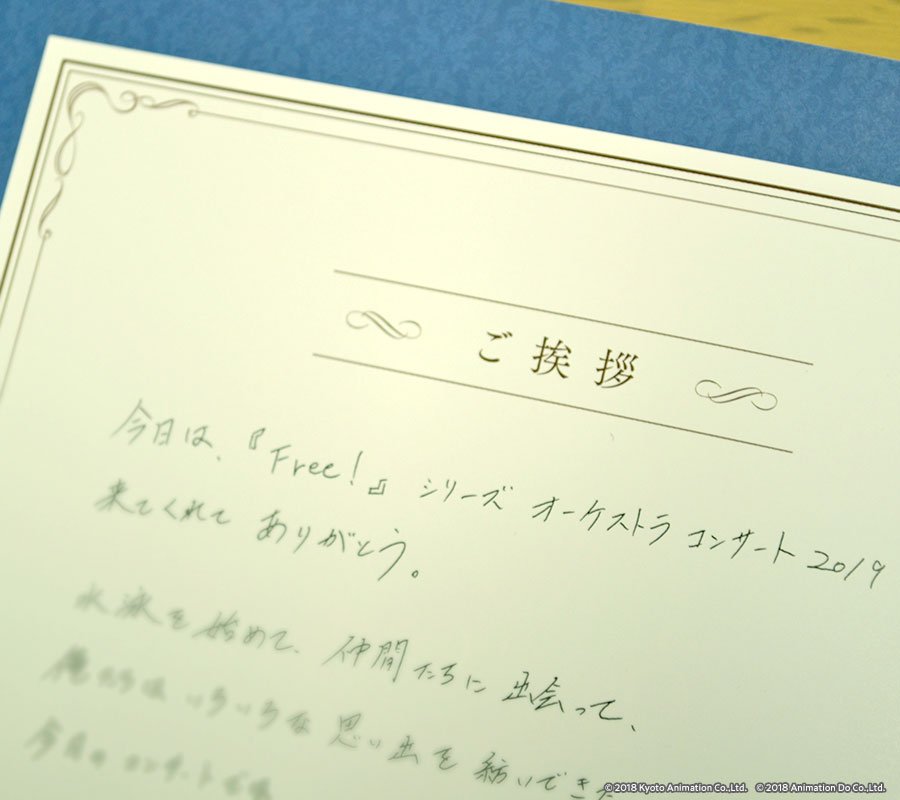 ご挨拶
今日は、『Free!』シリーズ オーケストラ コンサート 2019
来てくれて ありがとう。
水泳を始めて、仲間たちに 出会って、
俺たちは いろいろな 思い出を 紡いできた
今日の コンサートでは
© 2018 Kyoto Animation Co.,Ltd. © 2018 Animation Do Co.,Ltd.